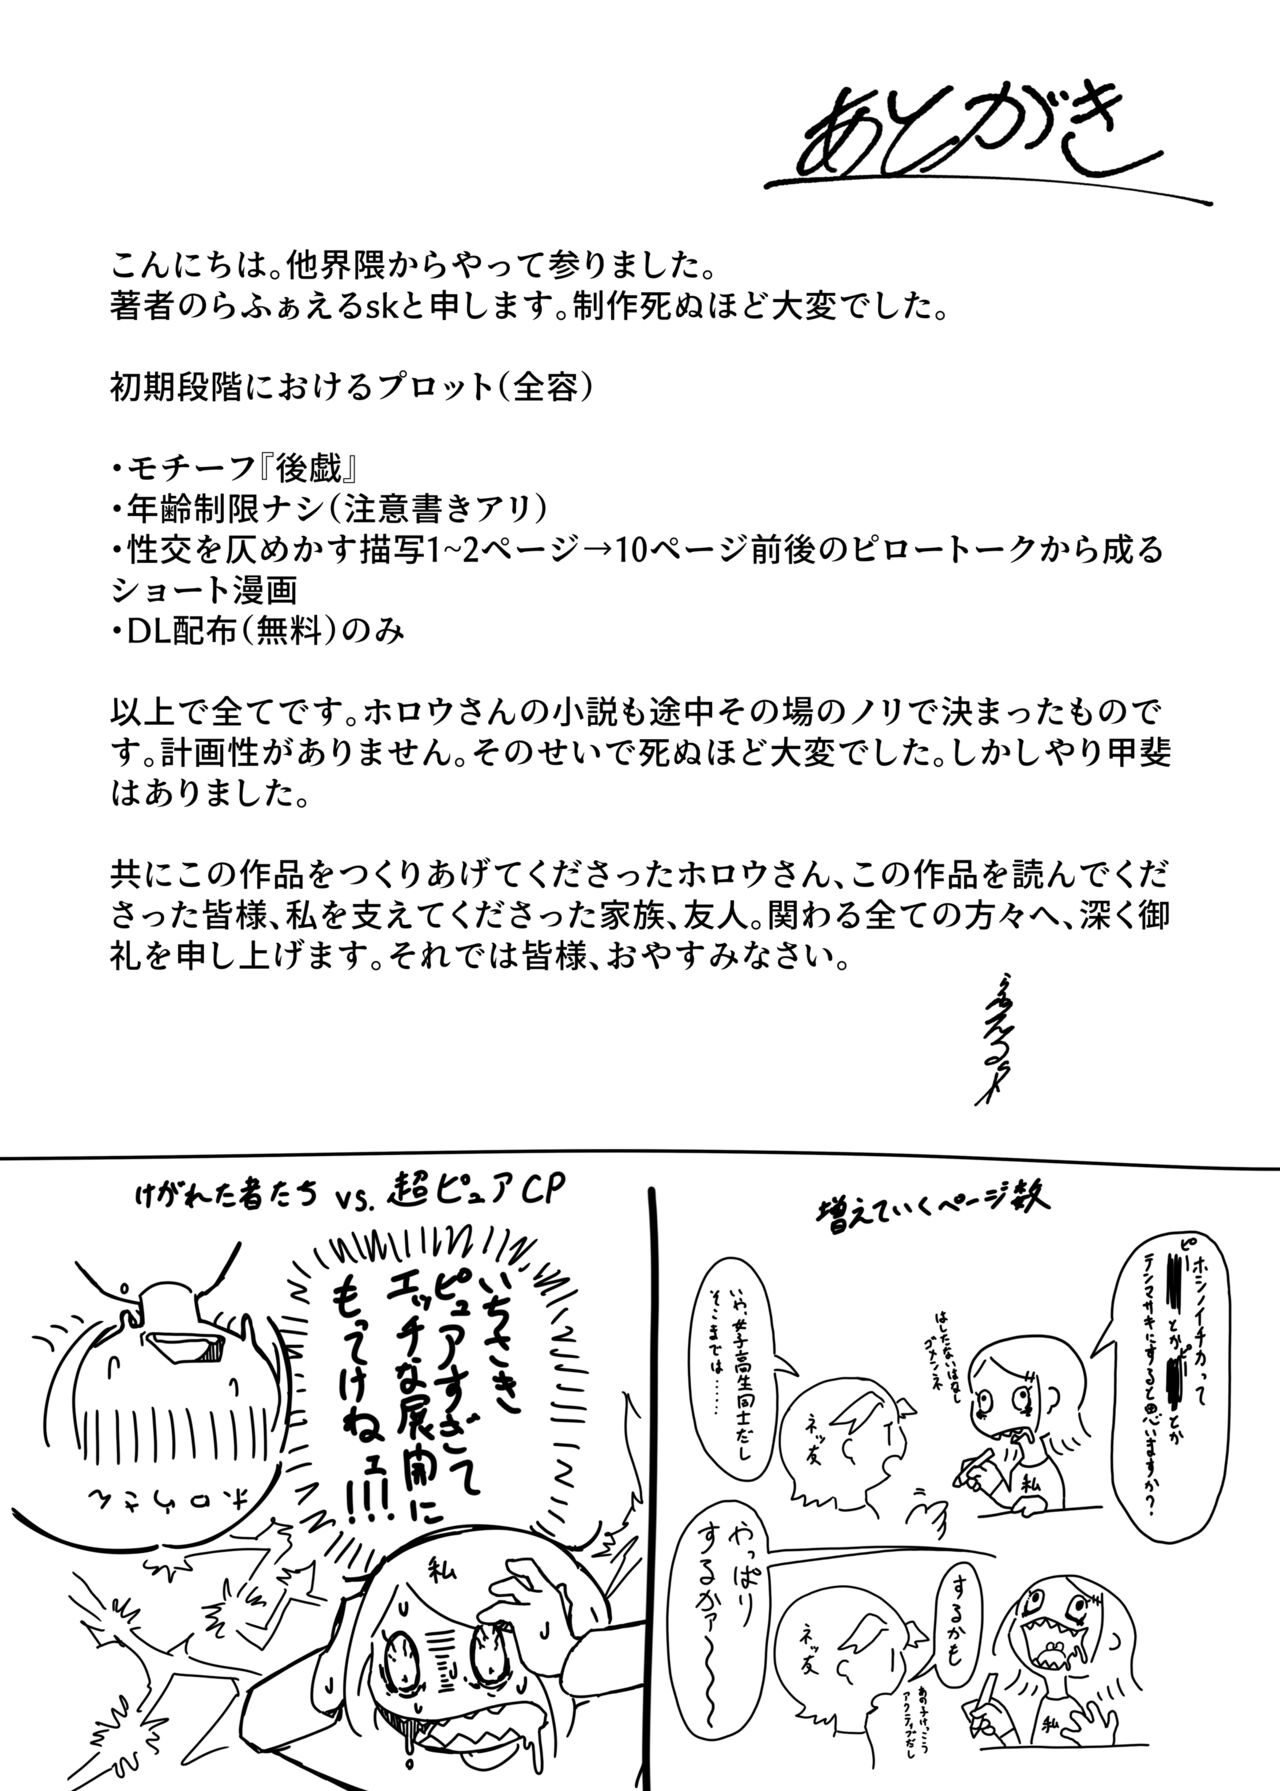 あとがき
こんにちは。他界隈からやって参りました。
著者のらふぁえるskと申します。制作死ぬほど大変でした。
初期段階におけるプロット（全容）
・モチーフ『後戯』
・年齢制限ナシ（注意書きアリ）
・性交を仄めかす描写1~2ページ→10ページ前後のピロートークから成る
ショート漫画
・DL配布（無料）のみ
以上で全てです。ホロウさんの小説も途中その場のノリで決まったもので
す。計画性がありません。そのせいで死ぬほど大変でした。しかしやり甲斐
はありました。
共にこの作品をつくりあげてくださったホロウさん、この作品を読んでくだ
さった皆様、私を支えてくださった家族、友人。関わる全ての方々へ、深く御
礼を申し上げます。それでは皆様、おやすみなさい。
らふぁえるsk
増えていくページ数
ホシノイチカって
ピー
とか
とか
テンマサキにすると思いますか？
はしたないはなし
ゴメンネ
私
いや、女子高生同士だし
そこまでは……
ネッ友
するかも
あの子けっこう
アクティブだし
ネッ友
やっぱり
するかァ〜〜〜
私
けがれた者たち vs. 超ピュアCP
いちさき
ピュアすぎて
エッチな展開に
もってけねェ!!!
ホロウさん
私